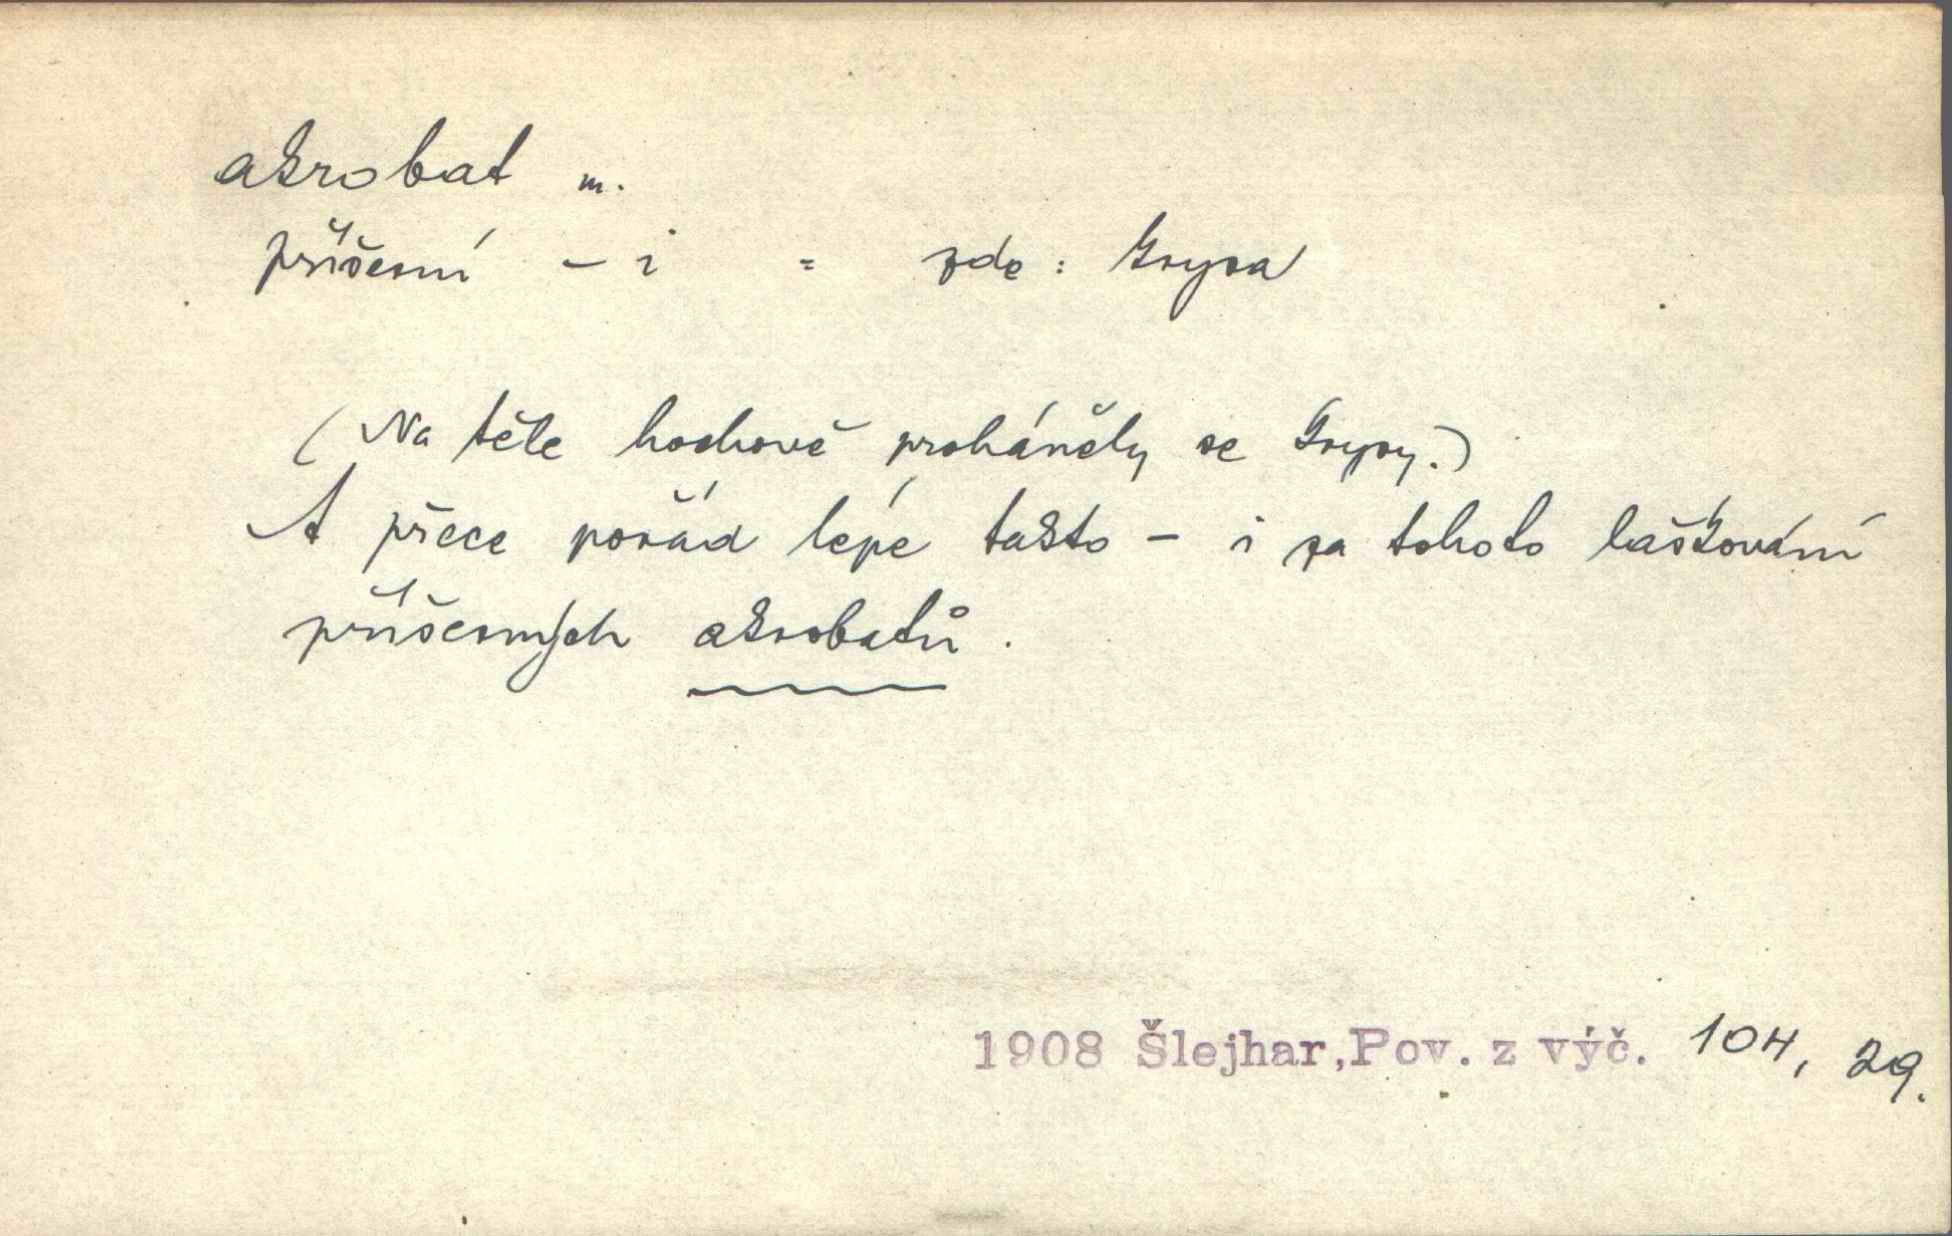 akrobat m.
příšerní - i = zde: krysa
(Na těle hochově proháněly se krysy.)
A přece pořád lépe takto - i za tohoto laškování
příšerných akrobatů.
1908 Šlejhar, Pov. z výč. 104, 29.